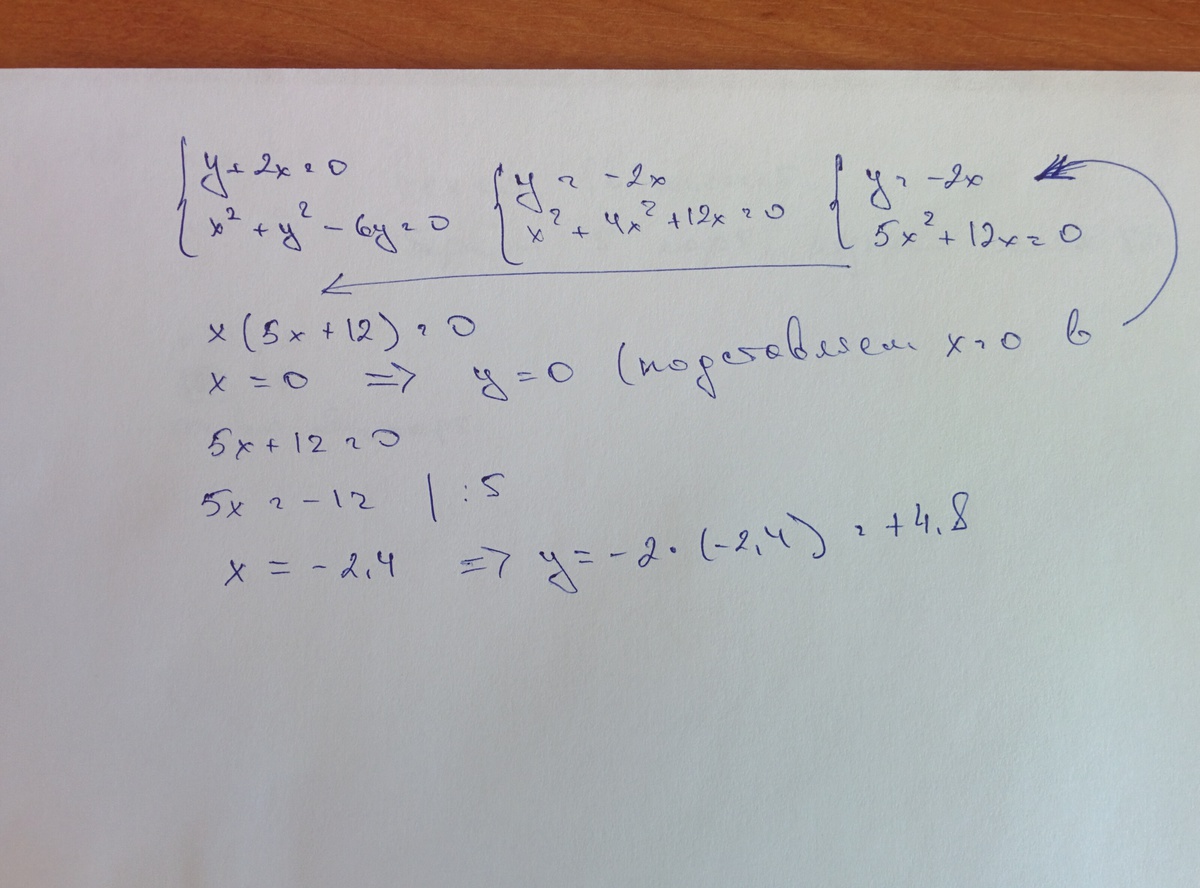 y + 2x = 0
x² + y² - 6y = 0
y = -2x
x² + 4x² + 12x = 0
y = -2x
5x² + 12x = 0
x(5x + 12) = 0
x = 0 => y = 0 (подставляем x = 0 в
5x + 12 = 0
5x = -12 | : 5
x = -2,4 => y = -2 · (-2,4) = +4,8